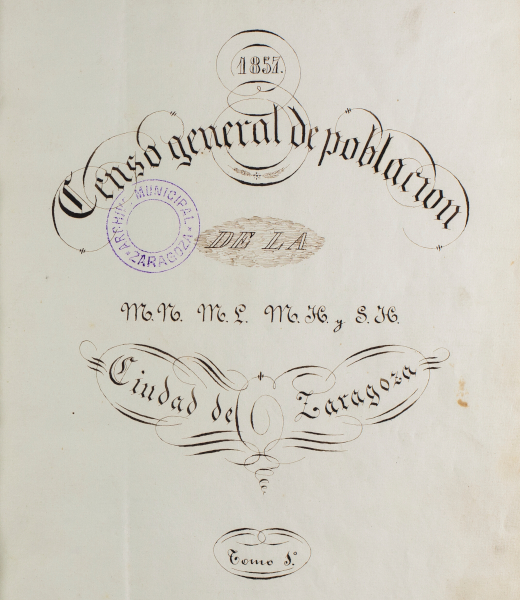 1857.
Censo general de poblacion
DE LA
M.N. M.L. M.H. y S.H.
Ciudad de Zaragoza
Tomo 1.º
ARCHIVO MUNICIPAL
ZARAGOZA